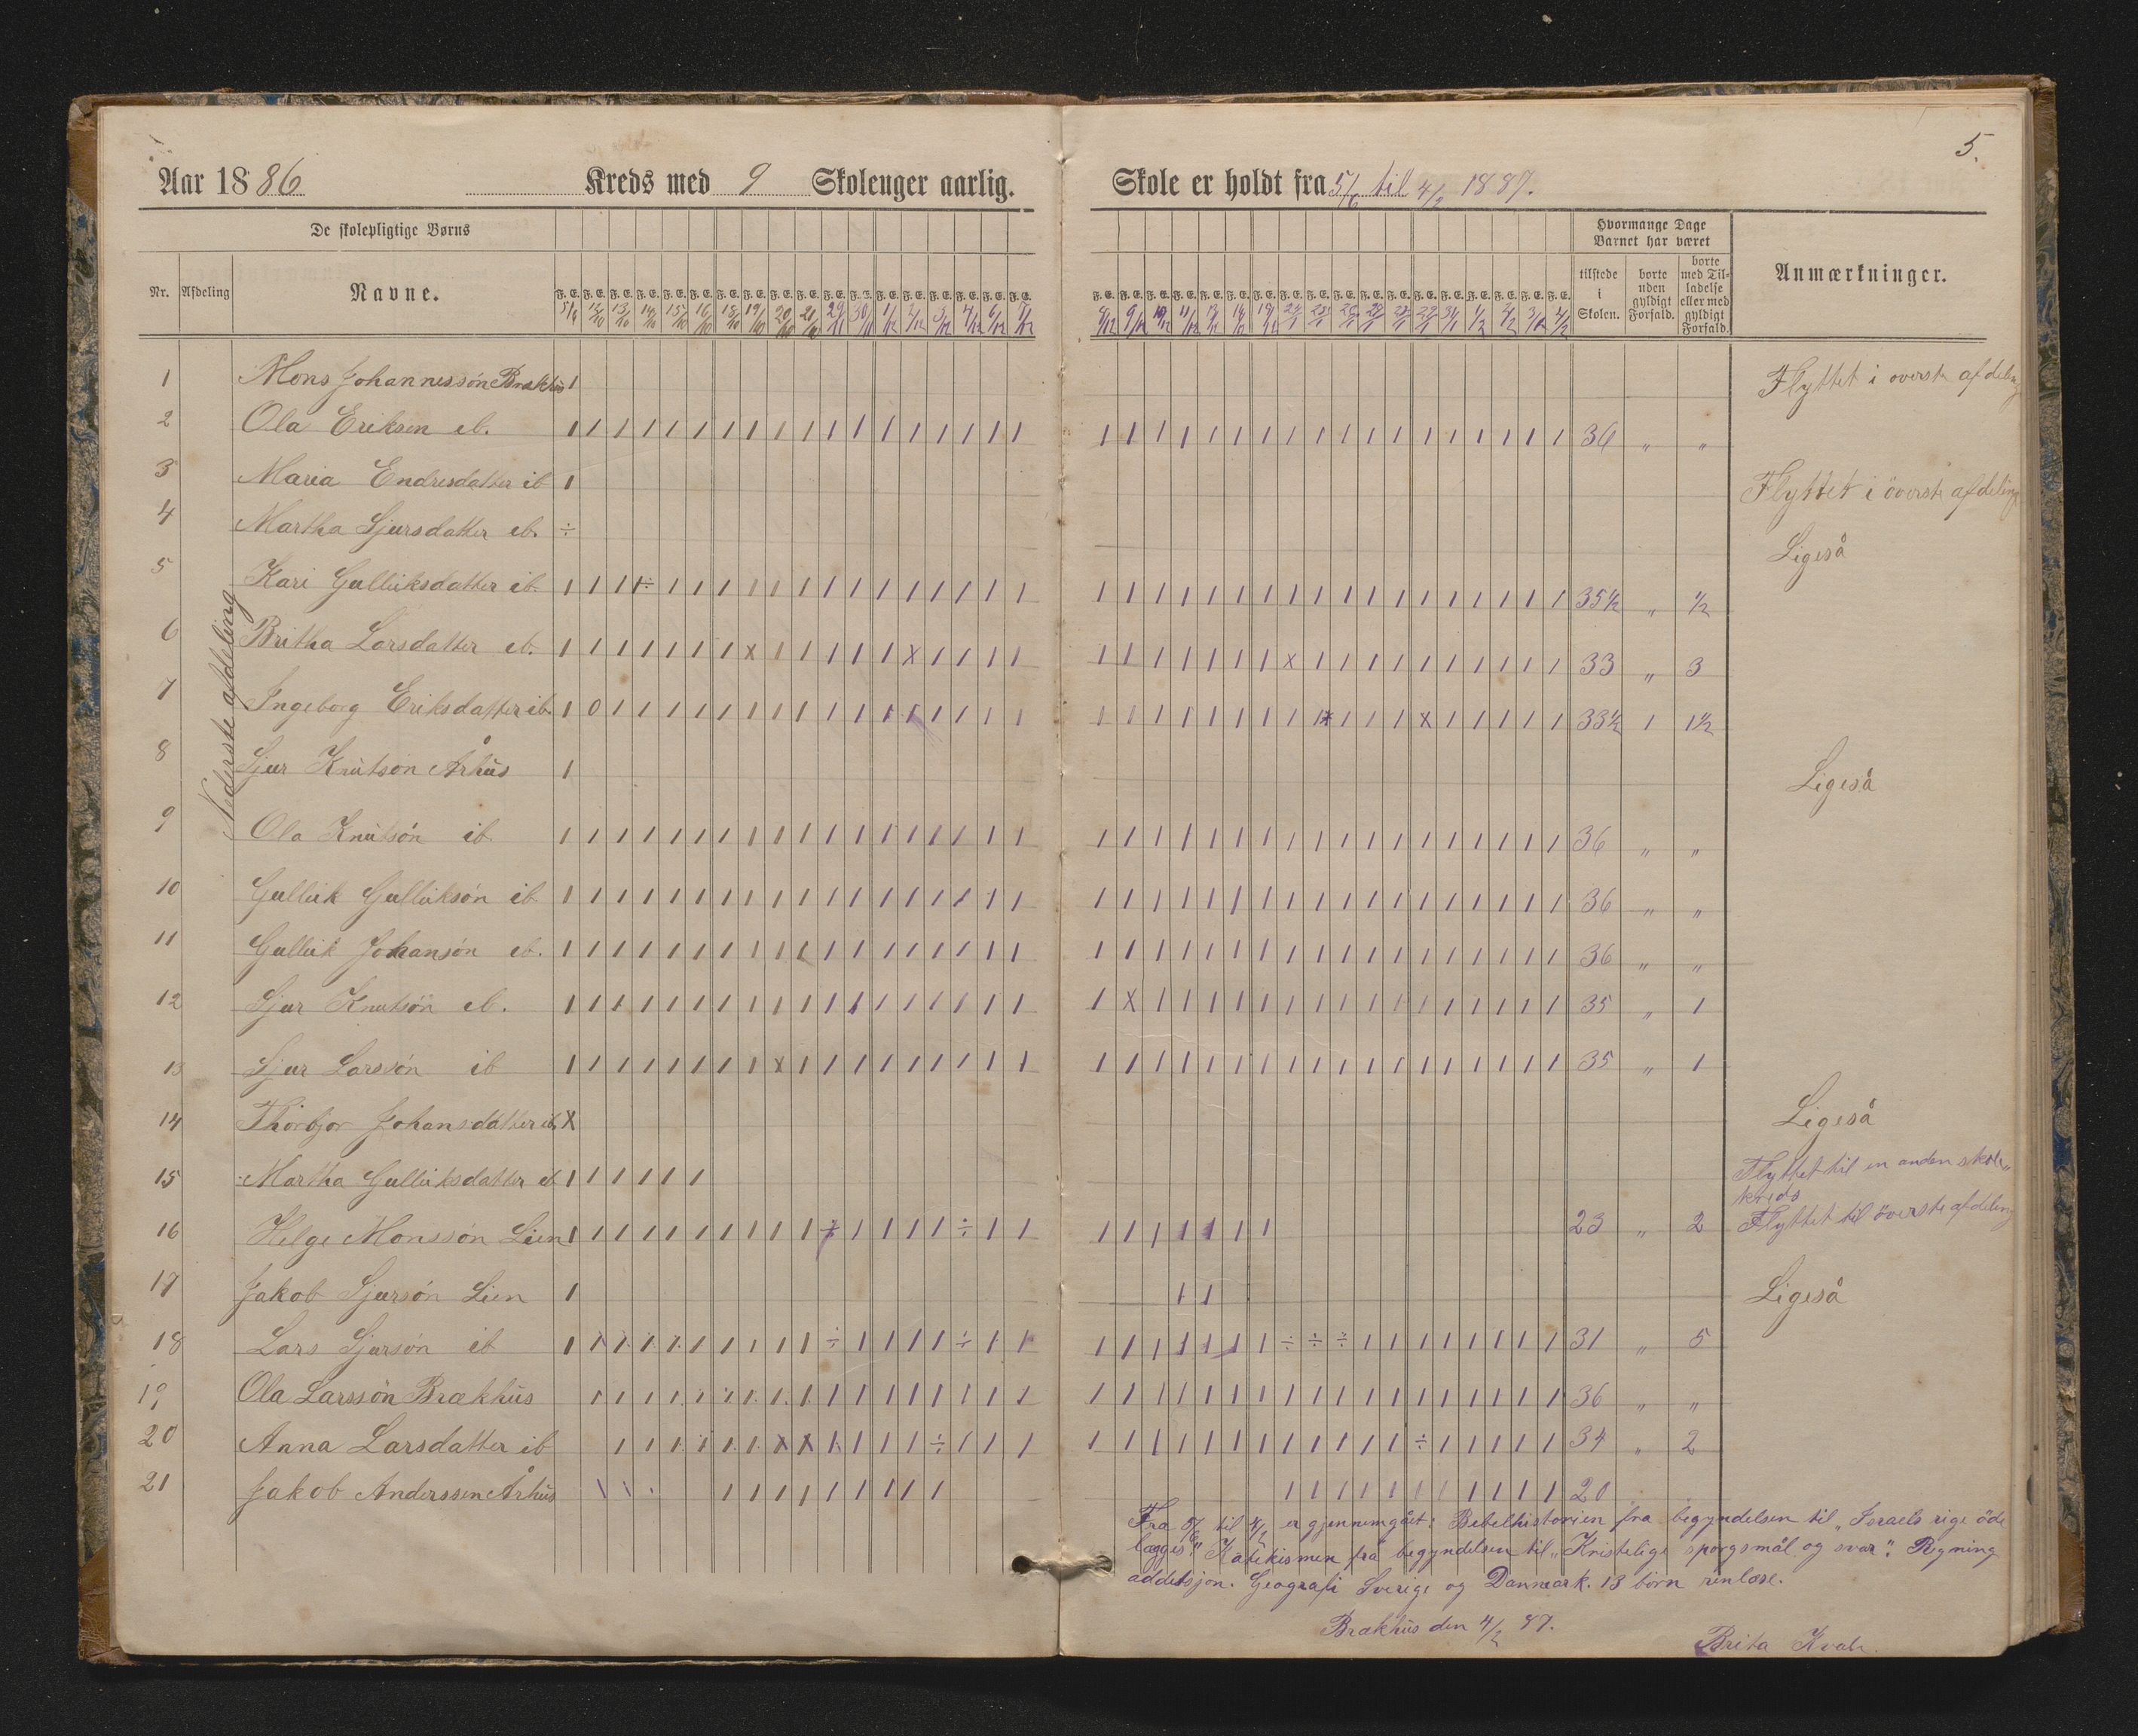 5.
Aar 1886 Kreds med 9 Skoleuger aarlig. Skole er holdt fra 5/6 til 4/2 1887.
De skolepligtige Børns
Hvormange Dage Barnet har været
Nr. Afdeling Navne. F. E. F. E. F. E. F. E. F. E. F. E. F. E. F. E. F. E. F. E. F. E. F. E. F. E. F. E. F. E. F. E. F. E. F. E.
tilstede i Skolen. borte uden gyldigt Forfald. borte med Tilladelse eller med gyldigt Forfald. Anmærkninger.
Nederste afdeling
1 Mons Johannessön Brækhüs 1 Flyttet i överste afdeling
2 Ola Eriksen ib. 1 1 1 1 1 1 1 1 1 1 1 1 1 1 1 1 1 1 36 „ „
3 Maria Endresdatter ib 1 Flyttet i överste afdeling
4 Martha Sjursdatter ib. ÷ Ligeså
5 Kari Gulliksdatter ib. 35½ „ ½
6 Britha Larsdatter ib. 33 „ 3
7 Ingeborg Eriksdatter ib. 33½ 1 1½
8 Sjur Knutson Århüs 1 Ligeså
9 Ola Knütsön ib. 36 „ „
10 Gullük Gulliksön ib 36 „ „
11 Gullik Johansön ib. 36 „ „
12 Sjur Knutsön ib. 35 „ 1
13 Sjur Larssön ib 35 „ 1
14 Thorbjor Johansdatter ib. X Ligeså
15 Martha Gulliksdatter ib 1 1 1 1 1 1 Flyttet til en anden skole„
kreds
16 Helge Monssön Lien 23 „ 2 Flyttet til överste afdeling
17 Jakob Sjursön Lien 1 1 1 Ligeså
18 Lars Sjursön ib 31 „ 5
19 Ola Larssön Brækhüs 36 „ „
20 Anna Larsdatter ib 34 „ 2
21 Jakob Anderssen Århüs 20
Fra 5/6 til 4/2 er gjennemgået: Bibelhistorien fra begyndelsen til „Israels rige öde
lægges". Katekismen fra begyndelsen til „Kristelige spörgsmål og svar". Regning
addisjon. Geografi Sverige og Danmark. 13 börn renlæse.
Brækhüs den 4/2 87.
Brita Kvale.